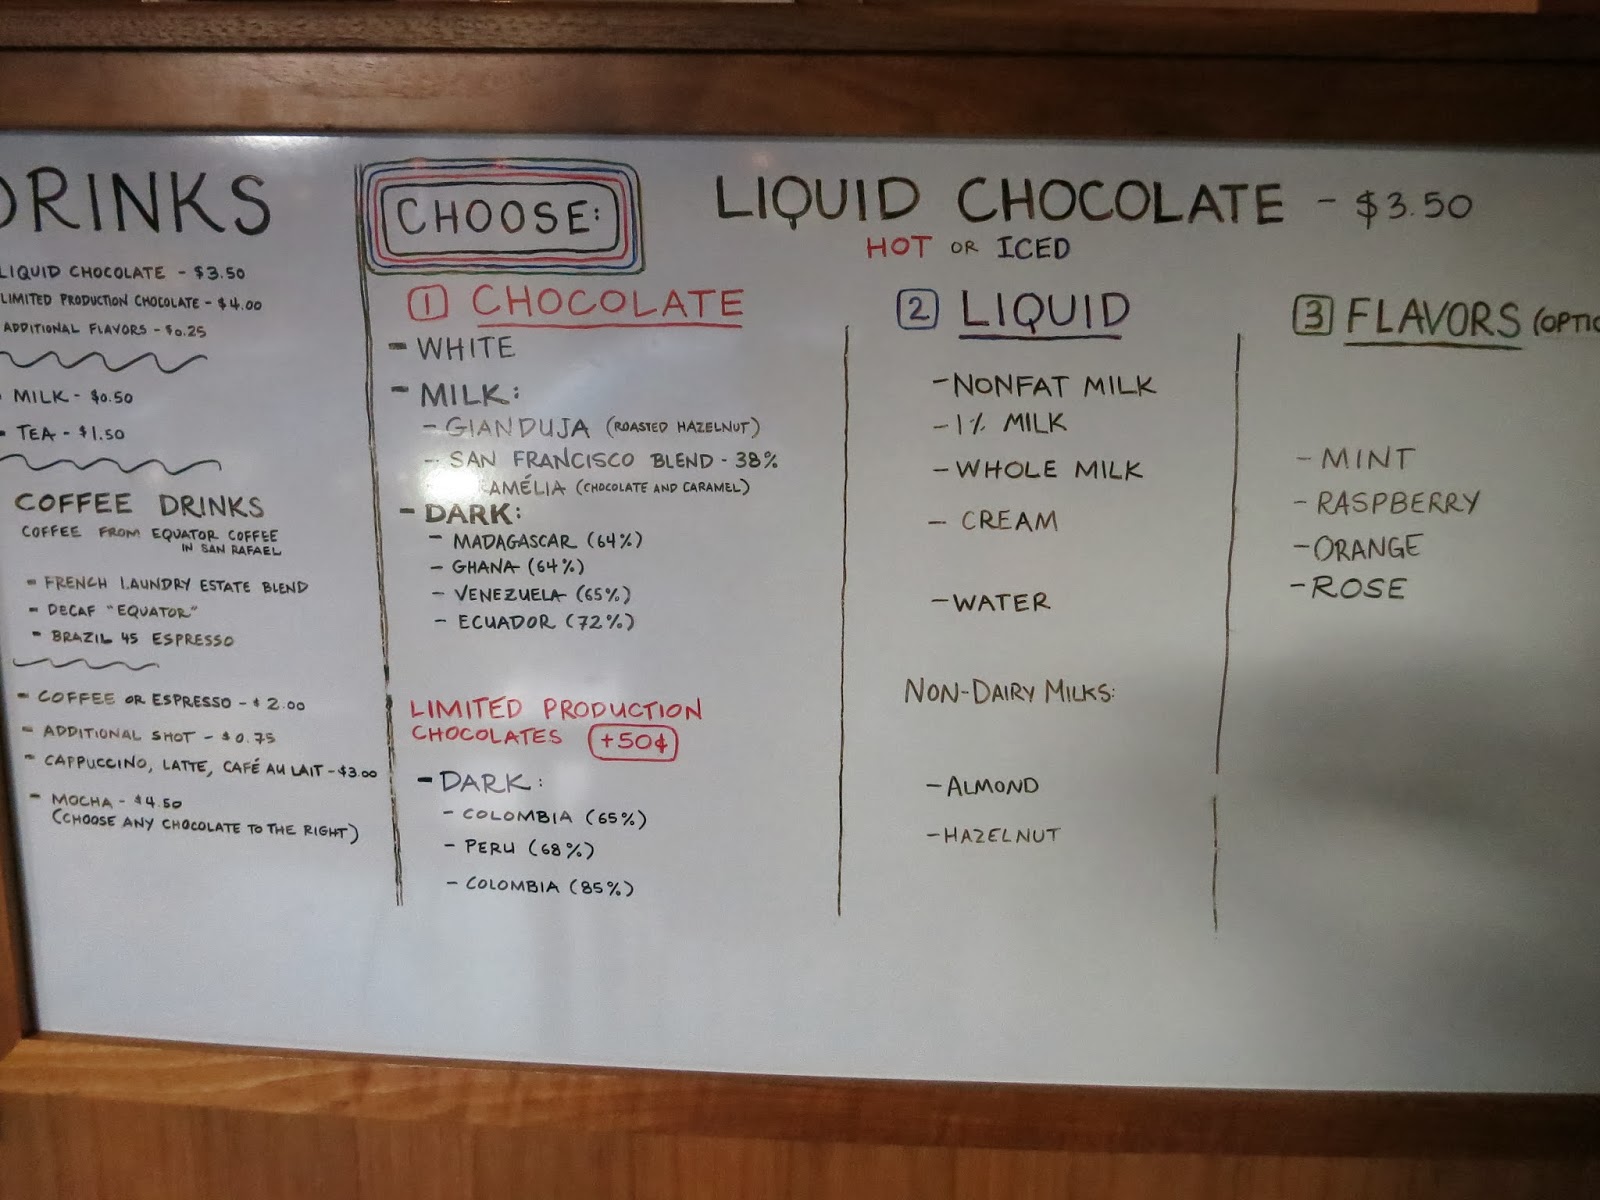 DRINKS
LIQUID CHOCOLATE - $3.50
LIMITED PRODUCTION CHOCOLATE - $4.00
ADDITIONAL FLAVORS - $0.25
MILK - $0.50
- TEA - $1.50
COFFEE DRINKS
COFFEE FROM EQUATOR COFFEE
IN SAN RAFAEL
- FRENCH LAUNDRY ESTATE BLEND
- DECAF "EQUATOR"
- BRAZIL 45 ESPRESSO
- COFFEE OR ESPRESSO - $2.00
- ADDITIONAL SHOT - $0.75
- CAPPUCCINO, LATTE, CAFÉ AU LAIT - $3.00
- MOCHA - $4.50
(CHOOSE ANY CHOCOLATE TO THE RIGHT)
CHOOSE:
LIQUID CHOCOLATE - $3.50
HOT OR ICED
1 CHOCOLATE
- WHITE
- MILK:
- GIANDUJA (ROASTED HAZELNUT)
- SAN FRANCISCO BLEND - 38%
AMÉLIA (CHOCOLATE AND CARAMEL)
- DARK:
- MADAGASCAR (64%)
- GHANA (64%)
- VENEZUELA (65%)
- ECUADOR (72%)
LIMITED PRODUCTION
CHOCOLATES +50¢
- DARK:
- COLOMBIA (65%)
- PERU (68%)
- COLOMBIA (85%)
2 LIQUID
- NONFAT MILK
- 1% MILK
- WHOLE MILK
- CREAM
- WATER
NON-DAIRY MILKS:
- ALMOND
- HAZELNUT
3 FLAVORS (OPTIO
- MINT
- RASPBERRY
- ORANGE
- ROSE